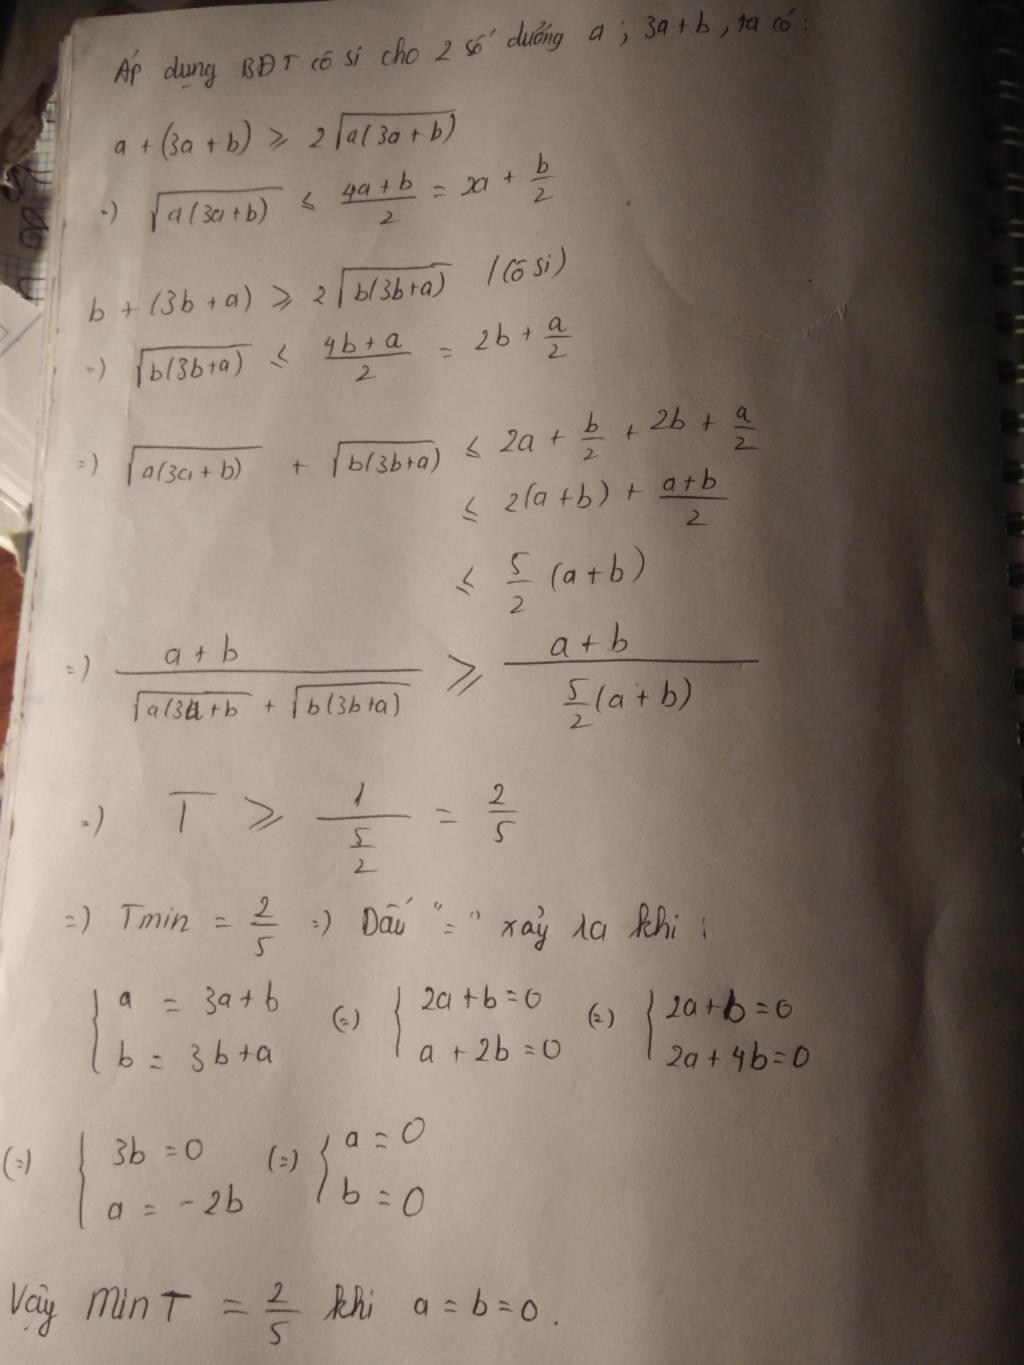 Áp dụng BĐT cô si cho 2 số dương a ; 3a + b , ta có :
a + (3a + b) ≥ 2√(a(3a + b))
=) √(a(3a+b)) ≤ (4a + b)/2 = 2a + b/2
b + (3b + a) ≥ 2√(b(3b+a)) (Cô si)
=) √(b(3b+a)) ≤ (4b + a)/2 = 2b + a/2
=) √(a(3a + b)) + √(b(3b+a)) ≤ 2a + b/2 + 2b + a/2
≤ 2(a + b) + (a+b)/2
≤ 5/2 (a + b)
=) (a + b)/(√(a(3a+b) + √(b(3b+a))) ≥ (a + b)/(5/2 (a + b))
=) T ≥ 1/(5/2) = 2/5
=) Tmin = 2/5 =) Dấu "=" xảy ra khi :
{ a = 3a + b ; b = 3b + a (=) { 2a + b = 0 ; a + 2b = 0 (=) { 2a + b = 0 ; 2a + 4b = 0
(=) { 3b = 0 ; a = - 2b (=) { a = 0 ; b = 0
Vậy Min T = 2/5 khi a = b = 0 .